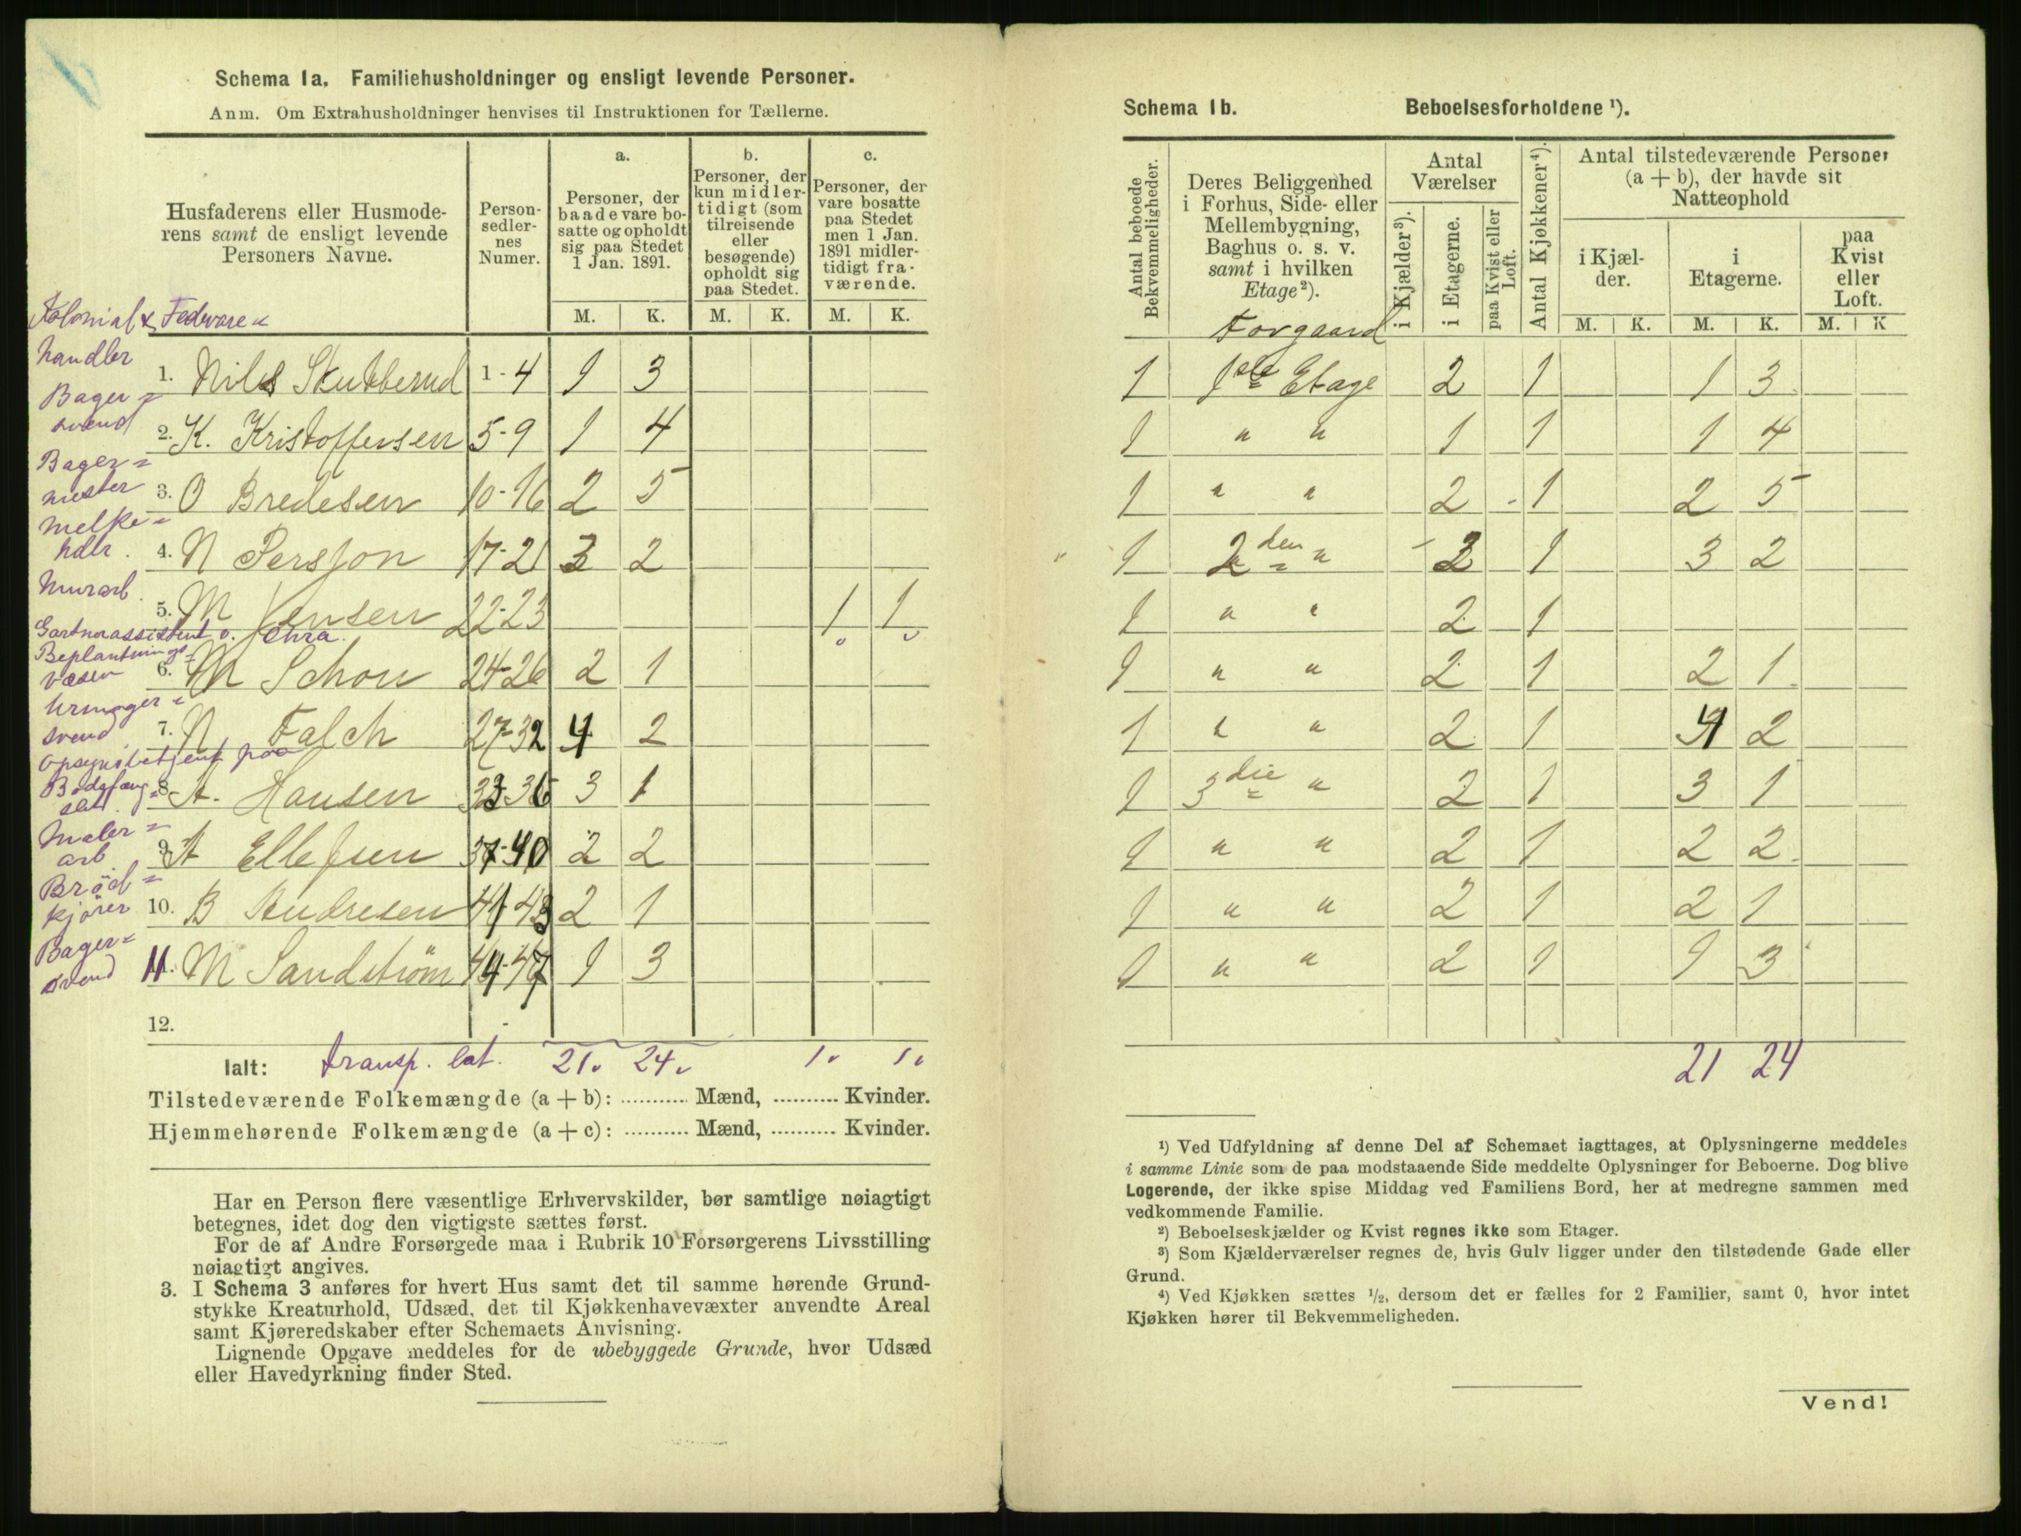 Schema 1a. Familiehusholdninger og ensligt levende Personer.
Anm. Om Extrahusholdninger henvises til Instruktionen for Tællerne.
Husfaderens eller Husmoderens samt de ensligt levende Personers Navne.
Personsedlernes Numer.
a.
Personer, der baade vare bosatte og opholdt sig paa Stedet 1 Jan. 1891.
b.
Personer, der kun midlertidigt (som tilreisende eller besøgende) opholdt sig paa Stedet.
c.
Personer, der vare bosatte paa Stedet men 1 Jan. 1891 midlertidigt fraværende.
M. K. M. K. M. K.
Kolonial & Fedevare=
handler
1. Nils Skutberud 1-4 1 3
Bager=
svend
2. K. Kristoffersen 5-9 1 4
Bager=
mester
3. O Bredesen 10-16 2 5
Melke=
hdlr.
4. N Persson 17-21 3 2
Murarb.
5. M Jensen 22-23 1 1
Gartnerassistent v. Chra.
Beplantnings=
væsen
6. M Schou 24-26 2 1
Urmager=
svend
7. N Falch 27-32 4 2
Opsynsbetjent paa
Bodsfæng=
slet
8. A. Hansen 33-36 3 1
Maler=
arb.
9. A Ellefsen 37-40 2 2
Brød=
kjører
10. B Andresen 41-43 2 1
Bager=
svend
11. M Sandstrøm 44-47 1 3
12.
Ialt: transp. lat. 21. 24. 1. 1.
Tilstedeværende Folkemængde (a + b): .......... Mænd, .......... Kvinder.
Hjemmehørende Folkemængde (a + c): .......... Mænd, .......... Kvinder.
Har en Person flere væsentlige Erhvervskilder, bør samtlige nøiagtigt
betegnes, idet dog den vigtigste sættes først.
For de af Andre Forsørgede maa i Rubrik 10 Forsørgerens Livsstilling
nøiagtigt angives.
3. I Schema 3 anføres for hvert Hus samt det til samme hørende Grund-
stykke Kreaturhold, Udsæd, det til Kjøkkenhavevæxter anvendte Areal
samt Kjøreredskaber efter Schemaets Anvisning.
Lignende Opgave meddeles for de ubebyggede Grunde, hvor Udsæd
eller Havedyrkning finder Sted.
Schema 1b. Beboelsesforholdene ¹).
Antal beboede Bekvemmeligheder.
Deres Beliggenhed i Forhus, Side- eller Mellembygning, Baghus o. s. v. samt i hvilken Etage²).
Antal Værelser
i Kjælder³).
i Etagerne.
paa Kvist eller Loft.
Antal Kjøkkener⁴).
Antal tilstedeværende Personer (a + b), der havde sit Natteophold
i Kjælder.
i Etagerne.
paa Kvist eller Loft.
M. K. M. K. M. K
Forgaard
1 1ste Etage 2 1 1 3
1 " " 1 1 1 4
1 " " 2 - 1 2 5
1 2den " 3 1 3 2
1 " " 2 1
1 " " 2 1 2 1
1 " " 2 1 4 2
1 3die " 2 1 3 1
1 " " 2 1 2 2
1 " " 2 1 2 1
1 " " 2 1 1 3
21 24
¹) Ved Udfyldning af denne Del af Schemaet iagttages, at Oplysningerne meddeles
i samme Linie som de paa modstaaende Side meddelte Oplysninger for Beboerne. Dog blive
Logerende, der ikke spise Middag ved Familiens Bord, her at medregne sammen med
vedkommende Familie.
²) Beboelseskjælder og Kvist regnes ikke som Etager.
³) Som Kjælderværelser regnes de, hvis Gulv ligger under den tilstødende Gade eller
Grund.
⁴) Ved Kjøkken sættes ½, dersom det er fælles for 2 Familier, samt 0, hvor intet
Kjøkken hører til Bekvemmeligheden.
Vend!